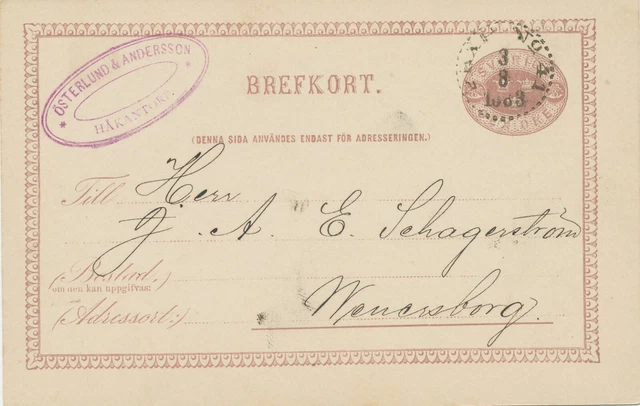 ÖSTERLUND & ANDERSSON
HÅKANTORP.
BREFKORT.
3
8
1883
(DENNA SIDA ANVÄNDES ENDAST FÖR ADRESSERINGEN.)
Till Herr
J. A. E. Schagerström
(Bostad.)
om den kan uppgifvas:
(Adressort:) Wenersborg.